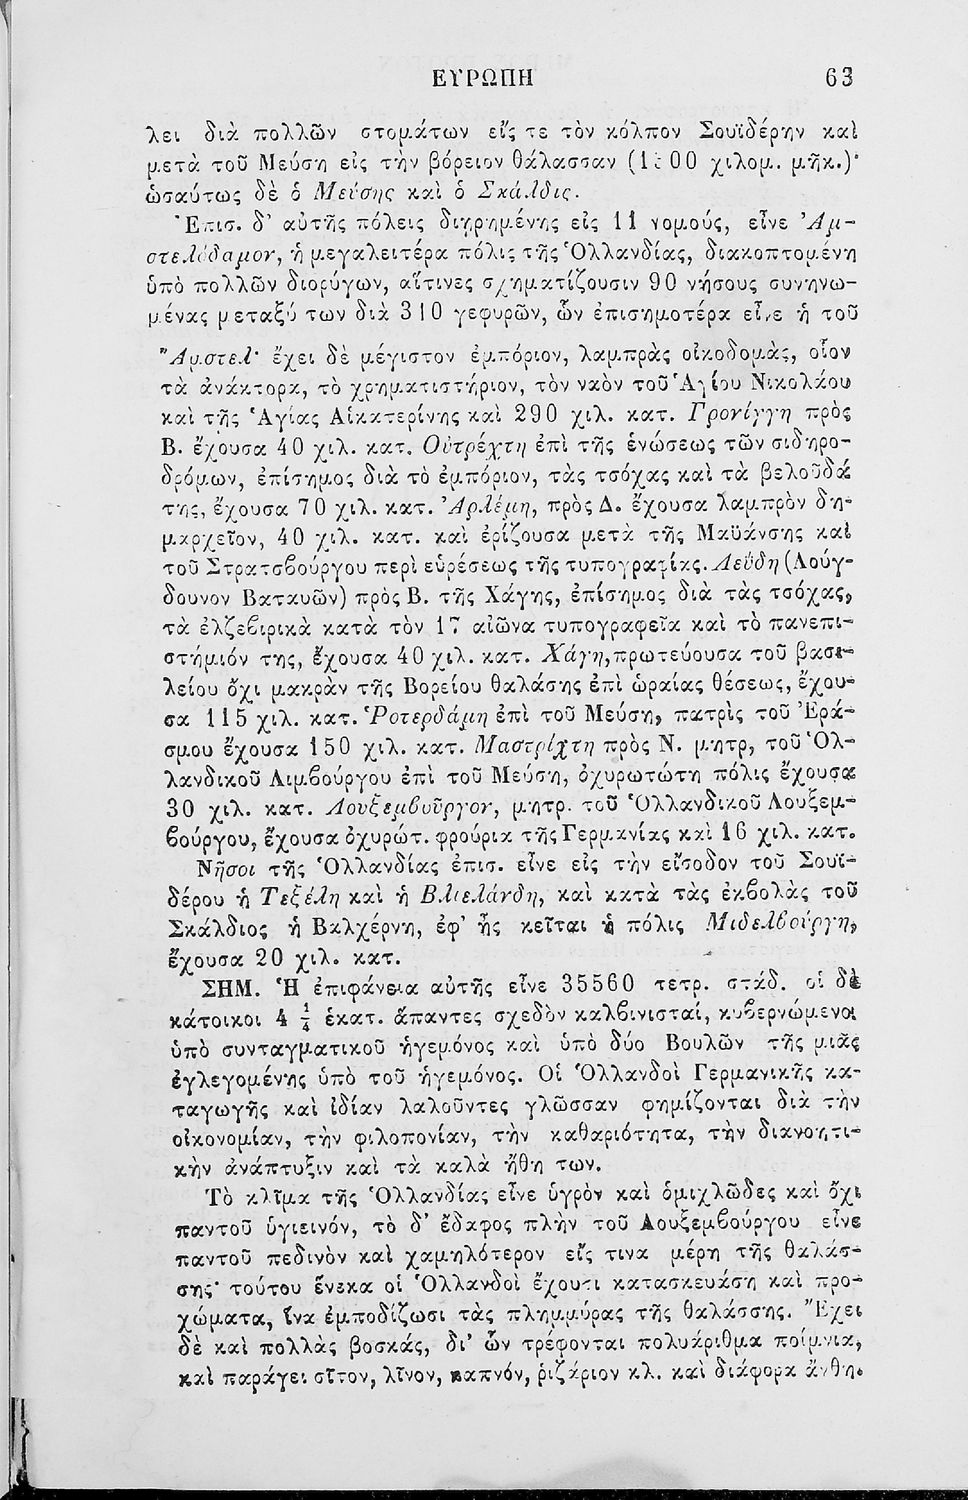 ΕΥΡΩΠΗ 63
λει διὰ πολλῶν στομάτων εἴς τε τὸν κόλπον Σουϊδέρην καὶ
μετὰ τοῦ Μεύση εἰς τὴν βόρειον θάλασσαν ( χιλομ. μῆκ.)·
ὡσαύτως δὲ ὁ Μεύσης καὶ ὁ Σκάλδις.
Ἐπισ. δ' αὐτῆς πόλεις διῃρημένης εἰς 11 νομούς, εἶνε Ἀμ-
στελόδαμον, ἡ μεγαλειτέρα πόλις τῆς Ὁλλανδίας, διακοπτομένη
ὑπὸ πολλῶν διορύγων, αἵτινες σχηματίζουσιν 90 νήσους συνηνω-
μένας μεταξύ των διὰ 310 γεφυρῶν, ὧν ἐπισημοτέρα εἶνε ἡ τοῦ
Ἄμστελ· ἔχει δὲ μέγιστον ἐμπόριον, λαμπρὰς οἰκοδομὰς, οἷον
τὰ ἀνάκτορα, τὸ χρηματιστήριον, τὸν ναὸν τοῦ Ἁγίου Νικολάου
καὶ τῆς Ἁγίας Αἰκατερίνης καὶ 290 χιλ. κατ. Γρονίγγη πρὸς
Β. ἔχουσα 40 χιλ. κατ. Οὐτρέχτη ἐπὶ τῆς ἑνώσεως τῶν σιδηρο-
δρόμων, ἐπίσημος διὰ τὸ ἐμπόριον, τὰς τσόχας καὶ τὰ βελοῦδά
της, ἔχουσα 70 χιλ. κατ. Ἀρλέμη, πρὸς Δ. ἔχουσα λαμπρὸν δη-
μαρχεῖον, 40 χιλ. κατ. καὶ ἐρίζουσα μετὰ τῆς Μαϋάνσης καὶ
τοῦ Στρατσβούργου περὶ εὑρέσεως τῆς τυπογραφίας. Λεΰδη (Λούγ-
δουνον Βαταυῶν) πρὸς Β. τῆς Χάγης, ἐπίσημος διὰ τὰς τσόχας,
τὰ ἐλζεβιρικὰ κατὰ τὸν 17 αἰῶνα τυπογραφεῖα καὶ τὸ πανεπι-
στήμιόν της, ἔχουσα 40 χιλ. κατ. Χάγη, πρωτεύουσα τοῦ βασι-
λείου ὄχι μακρὰν τῆς Βορείου θαλάσης ἐπὶ ὡραίας θέσεως, ἔχου-
σα 115 χιλ. κατ. Ῥοτερδάμη ἐπὶ τοῦ Μεύση, πατρὶς τοῦ Ἐρά-
σμου ἔχουσα 150 χιλ. κατ. Μαστρίχτη πρὸς Ν. μητρ, τοῦ Ὁλ-
λανδικοῦ Λιμβούργου ἐπὶ τοῦ Μεύση, ὀχυρωτώτη πόλις ἔχουσα
30 χιλ. κατ. Λουξεμβοῦργον, μητρ. τοῦ Ὁλλανδικοῦ Λουξεμ-
βούργου, ἔχουσα ὀχυρώτ. φρούρια τῆς Γερμανίας καὶ 16 χιλ. κατ.
Νῆσοι τῆς Ὁλλανδίας ἐπισ. εἶνε εἰς τὴν εἴσοδον τοῦ Σουϊ-
δέρου ἡ Τεξέλη καὶ ἡ Βλιελάνδη, καὶ κατὰ τὰς ἐκβολὰς τοῦ
Σκάλδιος ἡ Βαλχέρνη, ἐφ' ἧς κεῖται ἡ πόλις Μιδελβούργη,
ἔχουσα 20 χιλ. κατ.
ΣΗΜ. Ἡ ἐπιφάνεια αὐτῆς εἶνε 35560 τετρ. στάδ. οἱ δὲ
κάτοικοι 4 ¼ ἑκατ. ἅπαντες σχεδὸν καλβινισταί, κυβερνώμενοι
ὑπὸ συνταγματικοῦ ἡγεμόνος καὶ ὑπὸ δύο Βουλῶν τῆς μιᾶς
ἐγλεγομένης ὑπὸ τοῦ ἡγεμόνος. Οἱ Ὁλλανδοὶ Γερμανικῆς κα-
ταγωγῆς καὶ ἰδίαν λαλοῦντες γλῶσσαν φημίζονται διὰ τὴν
οἰκονομίαν, τὴν φιλοπονίαν, τὴν καθαριότητα, τὴν διανοητι-
κὴν ἀνάπτυξιν καὶ τὰ καλὰ ἤθη των.
Τὸ κλῖμα τῆς Ὁλλανδίας εἶνε ὑγρὸν καὶ ὁμιχλῶδες καὶ ὄχι
παντοῦ ὑγιεινόν, τὸ δ' ἔδαφος πλὴν τοῦ Λουξεμβούργου εἶνε
παντοῦ πεδινὸν καὶ χαμηλότερον εἴς τινα μέρη τῆς θαλάσ-
σης· τούτου ἕνεκα οἱ Ὁλλανδοὶ ἔχουσι κατασκευάση καὶ προ-
χώματα, ἵνα ἐμποδίζωσι τὰς πλημμύρας τῆς θαλάσσης. Ἔχει
δὲ καὶ πολλὰς βοσκάς, δι' ὧν τρέφονται πολυάριθμα ποίμνια,
καὶ παράγει σῖτον, λῖνον, καπνόν, ῥιζάριον κλ. καὶ διάφορα ἄνθη.